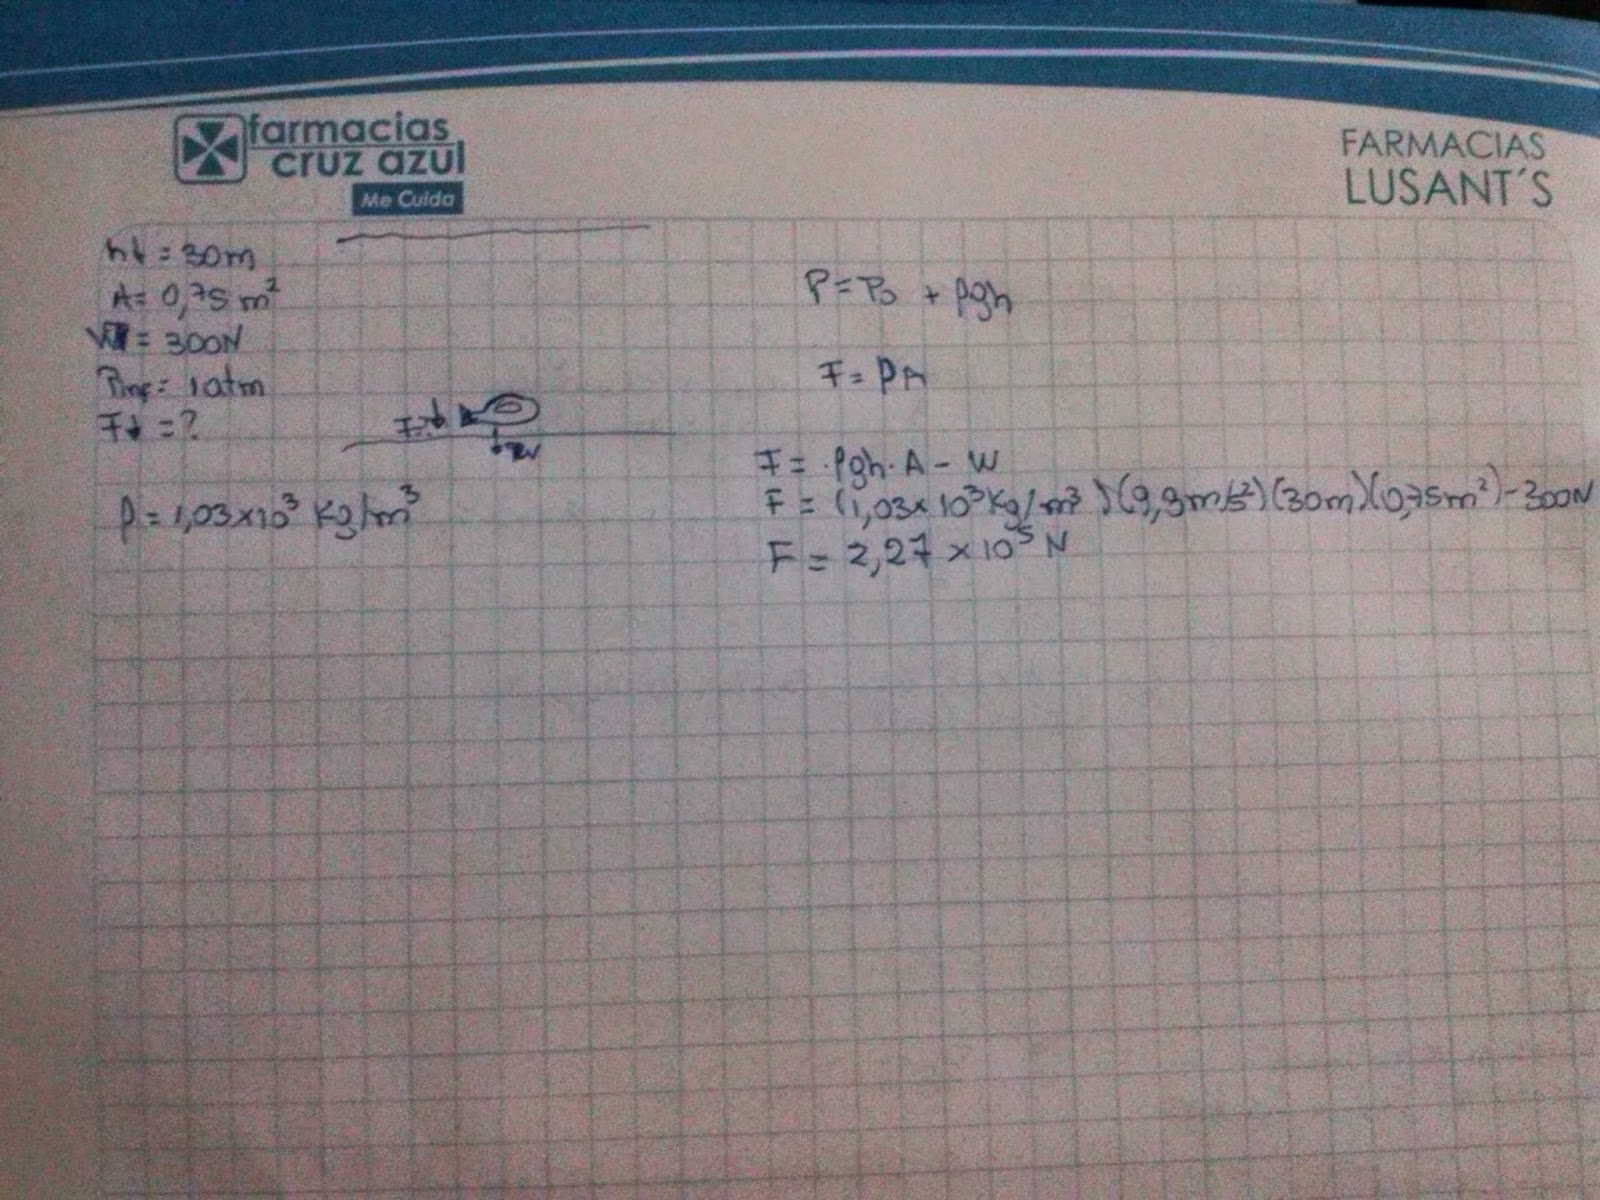 farmacias
cruz azul
Me Cuida
FARMACIAS
LUSANT´S
h↓ = 30m
A = 0,75 m²
W = 300N
= 1 atm
F↓ = ?
ρ = 1,03x10³ Kg/m³
P = P₀ + ρgh
F = PA
F = ρgh · A - W
F = (1,03x10³ Kg/m³)(9,8m/s²)(30m)(0,75m²) - 300N
F = 2,27 x 10⁵ N